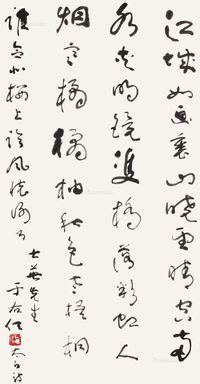 江城如畫裏山曉望晴空兩
水夾明鏡雙橋落彩虹人
烟寒橘橘柚秋色老梧桐
誰念北樓上臨風懷謝公
先生
于右任
太白詩